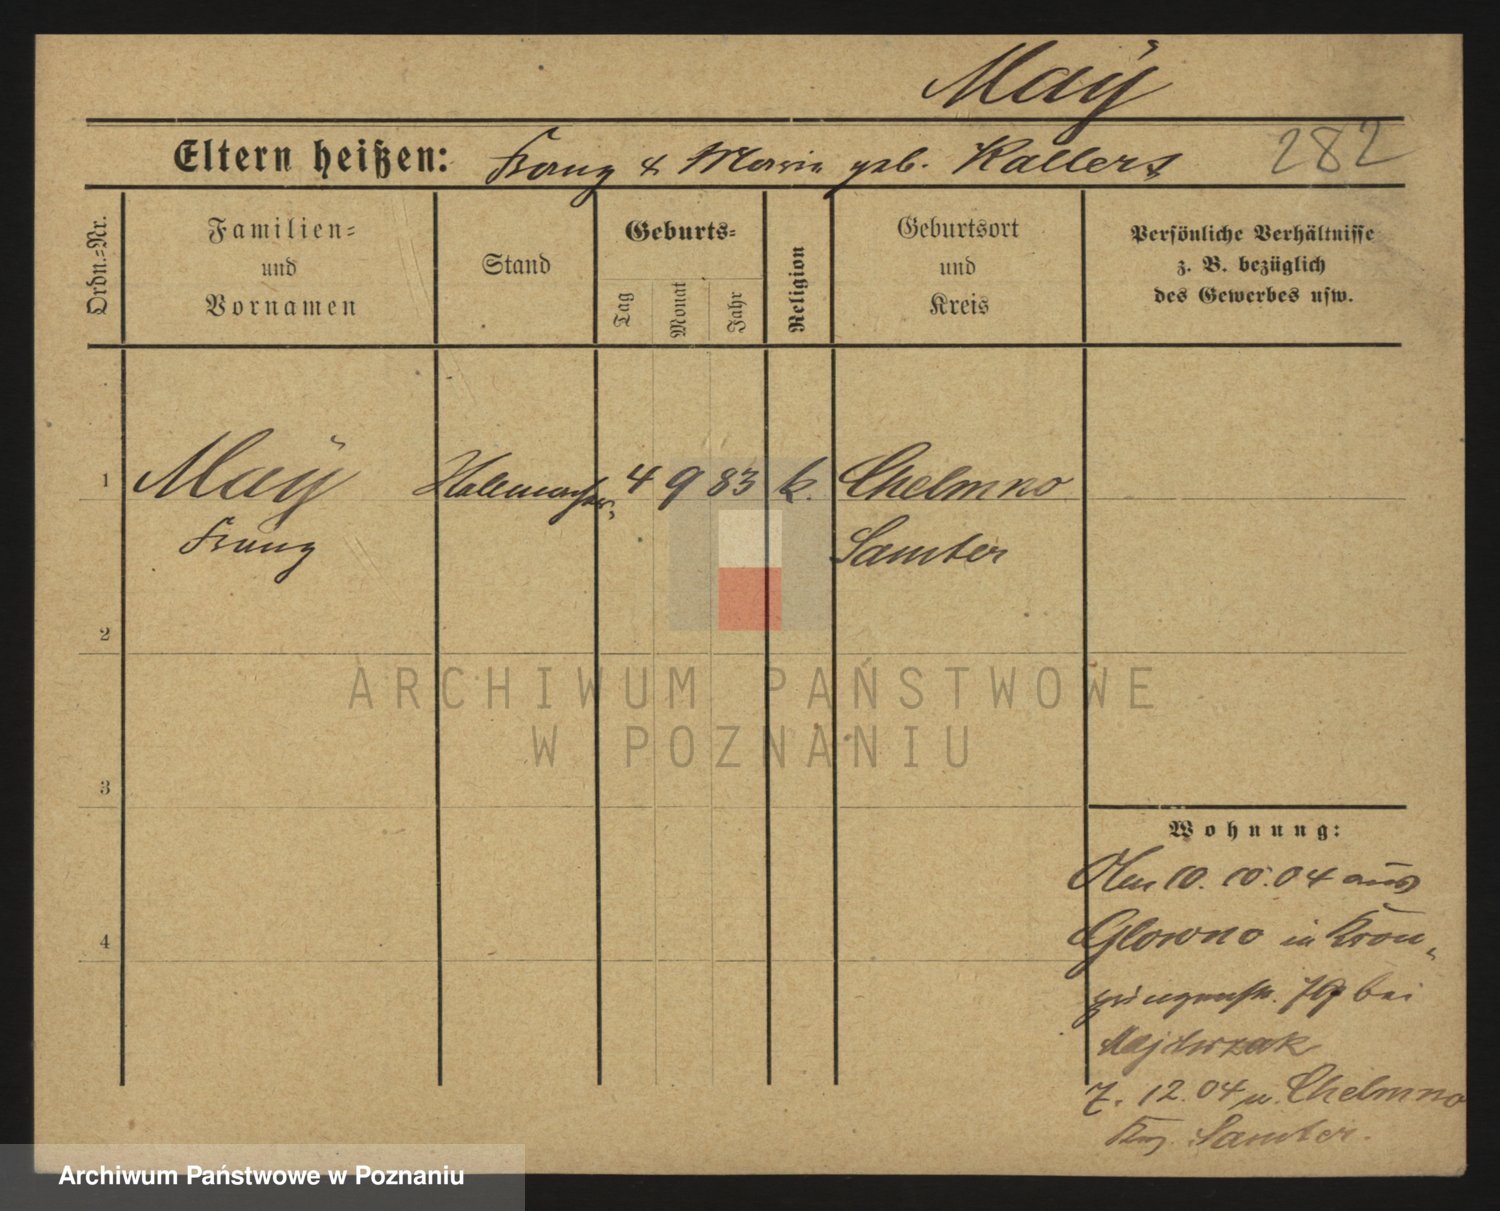 Maÿ
Eltern heißen: Franz & Maria geb. Kallers 282
Ordn.=Nr.
Familien=
und
Vornamen
Stand
Geburts=
Tag
Monat
Jahr
Religion
Geburtsort
und
Kreis
Persönliche Verhältnisse
z. B. bezüglich
des Gewerbes usw.
1 Maÿ 4 9 83 k. Chelmno
Franz Samter
2
ARCHIWUM PAŃSTWOWE
W POZNANIU
3
Wohnung:
10. 10. 04 aus
Glowno in Kron-
prinzenstr. bei
4
7. 12. 04 n. Chelmno
Samter.
Archiwum Państwowe w Poznaniu